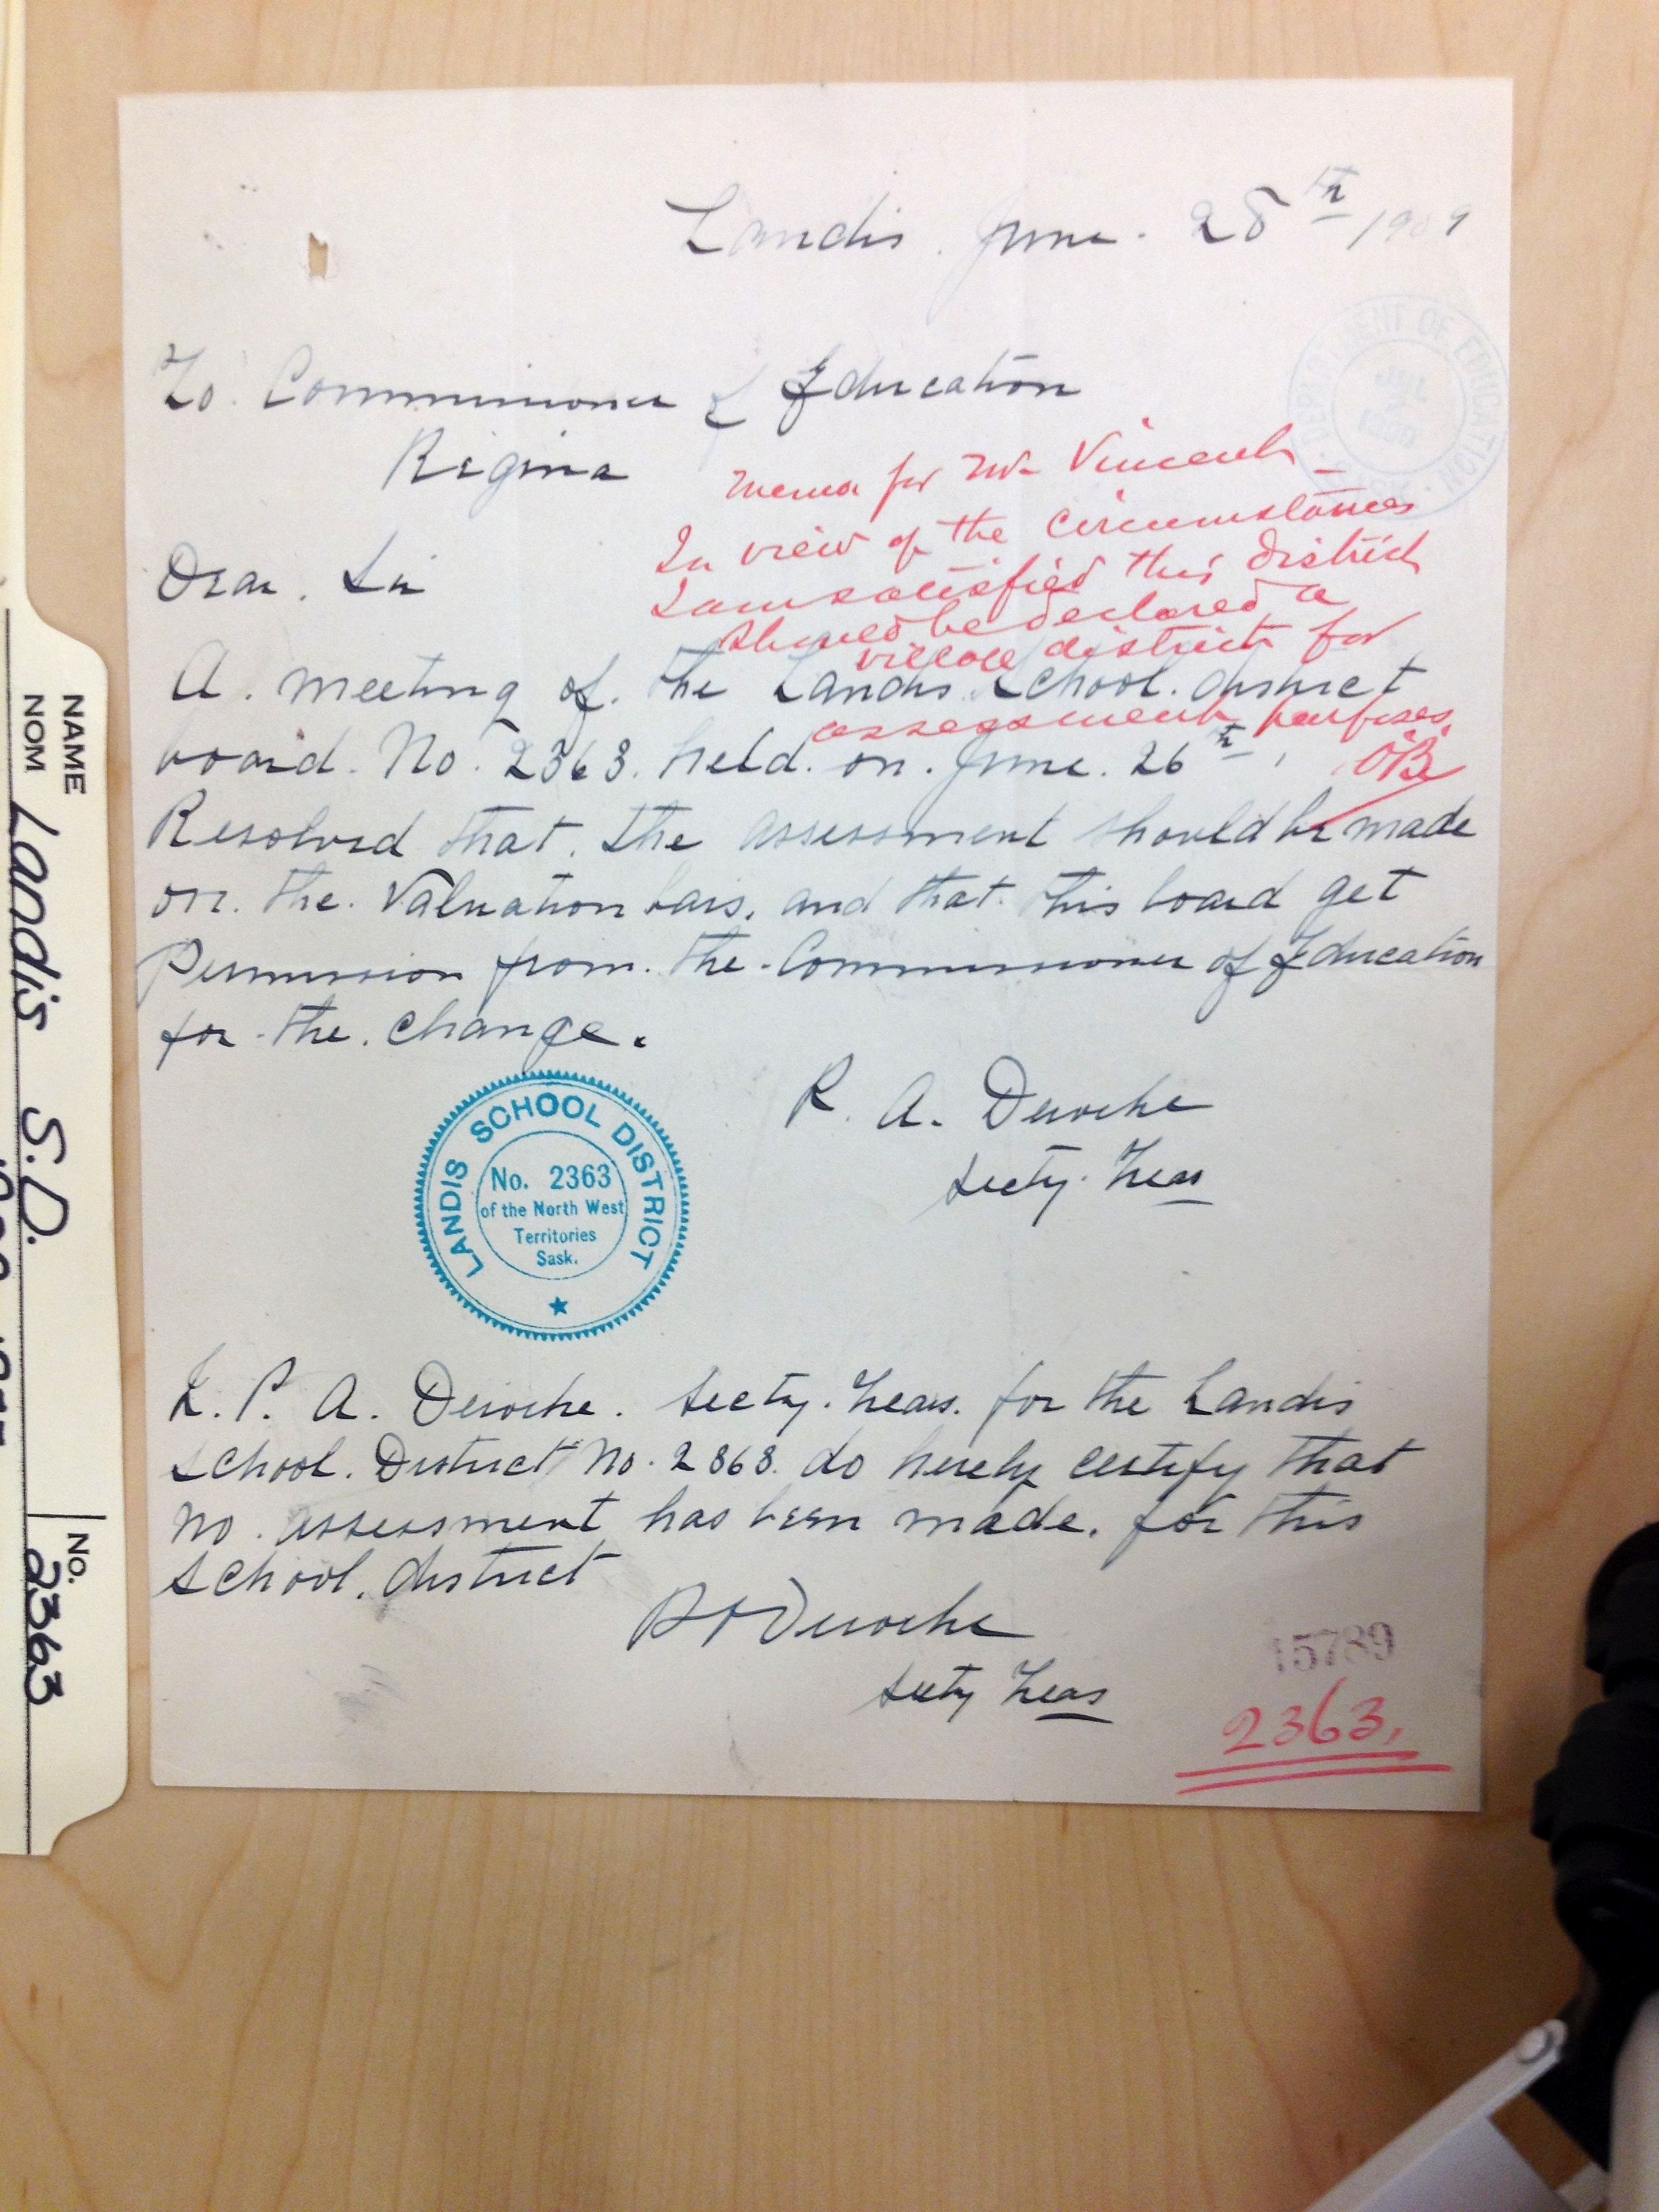 Landis. June. 28th 1909
DEPARTMENT OF EDUCATION
JUL
To. Commissioner of Education
Regina
Memo for Mr Vincent -
In view of the circumstances
I am satisfied this district
should be declared a
village district for
assessment purposes.
Dear. Sir
A. meeting of. the Landis School. district
board. No. 2363. held. on. June. 26th.
Resolved that. the assessment should be made
on. the. Valuation bais. and that. this board get
Permission from. the. Commissioner of Education
for. the. change.
R. A. Deroche
Secty. Treas
LANDIS SCHOOL DISTRICT
No. 2363
of the North West
Territories
Sask.
A. Deroche. Secty. Treas. for the Landis
School. District No. 2363. do hereby certify that
no. assessment has been made. for this
School. district
Deroche
Secty Treas
15789
2363.
NAME
NOM Landis S.D.
No. 2363